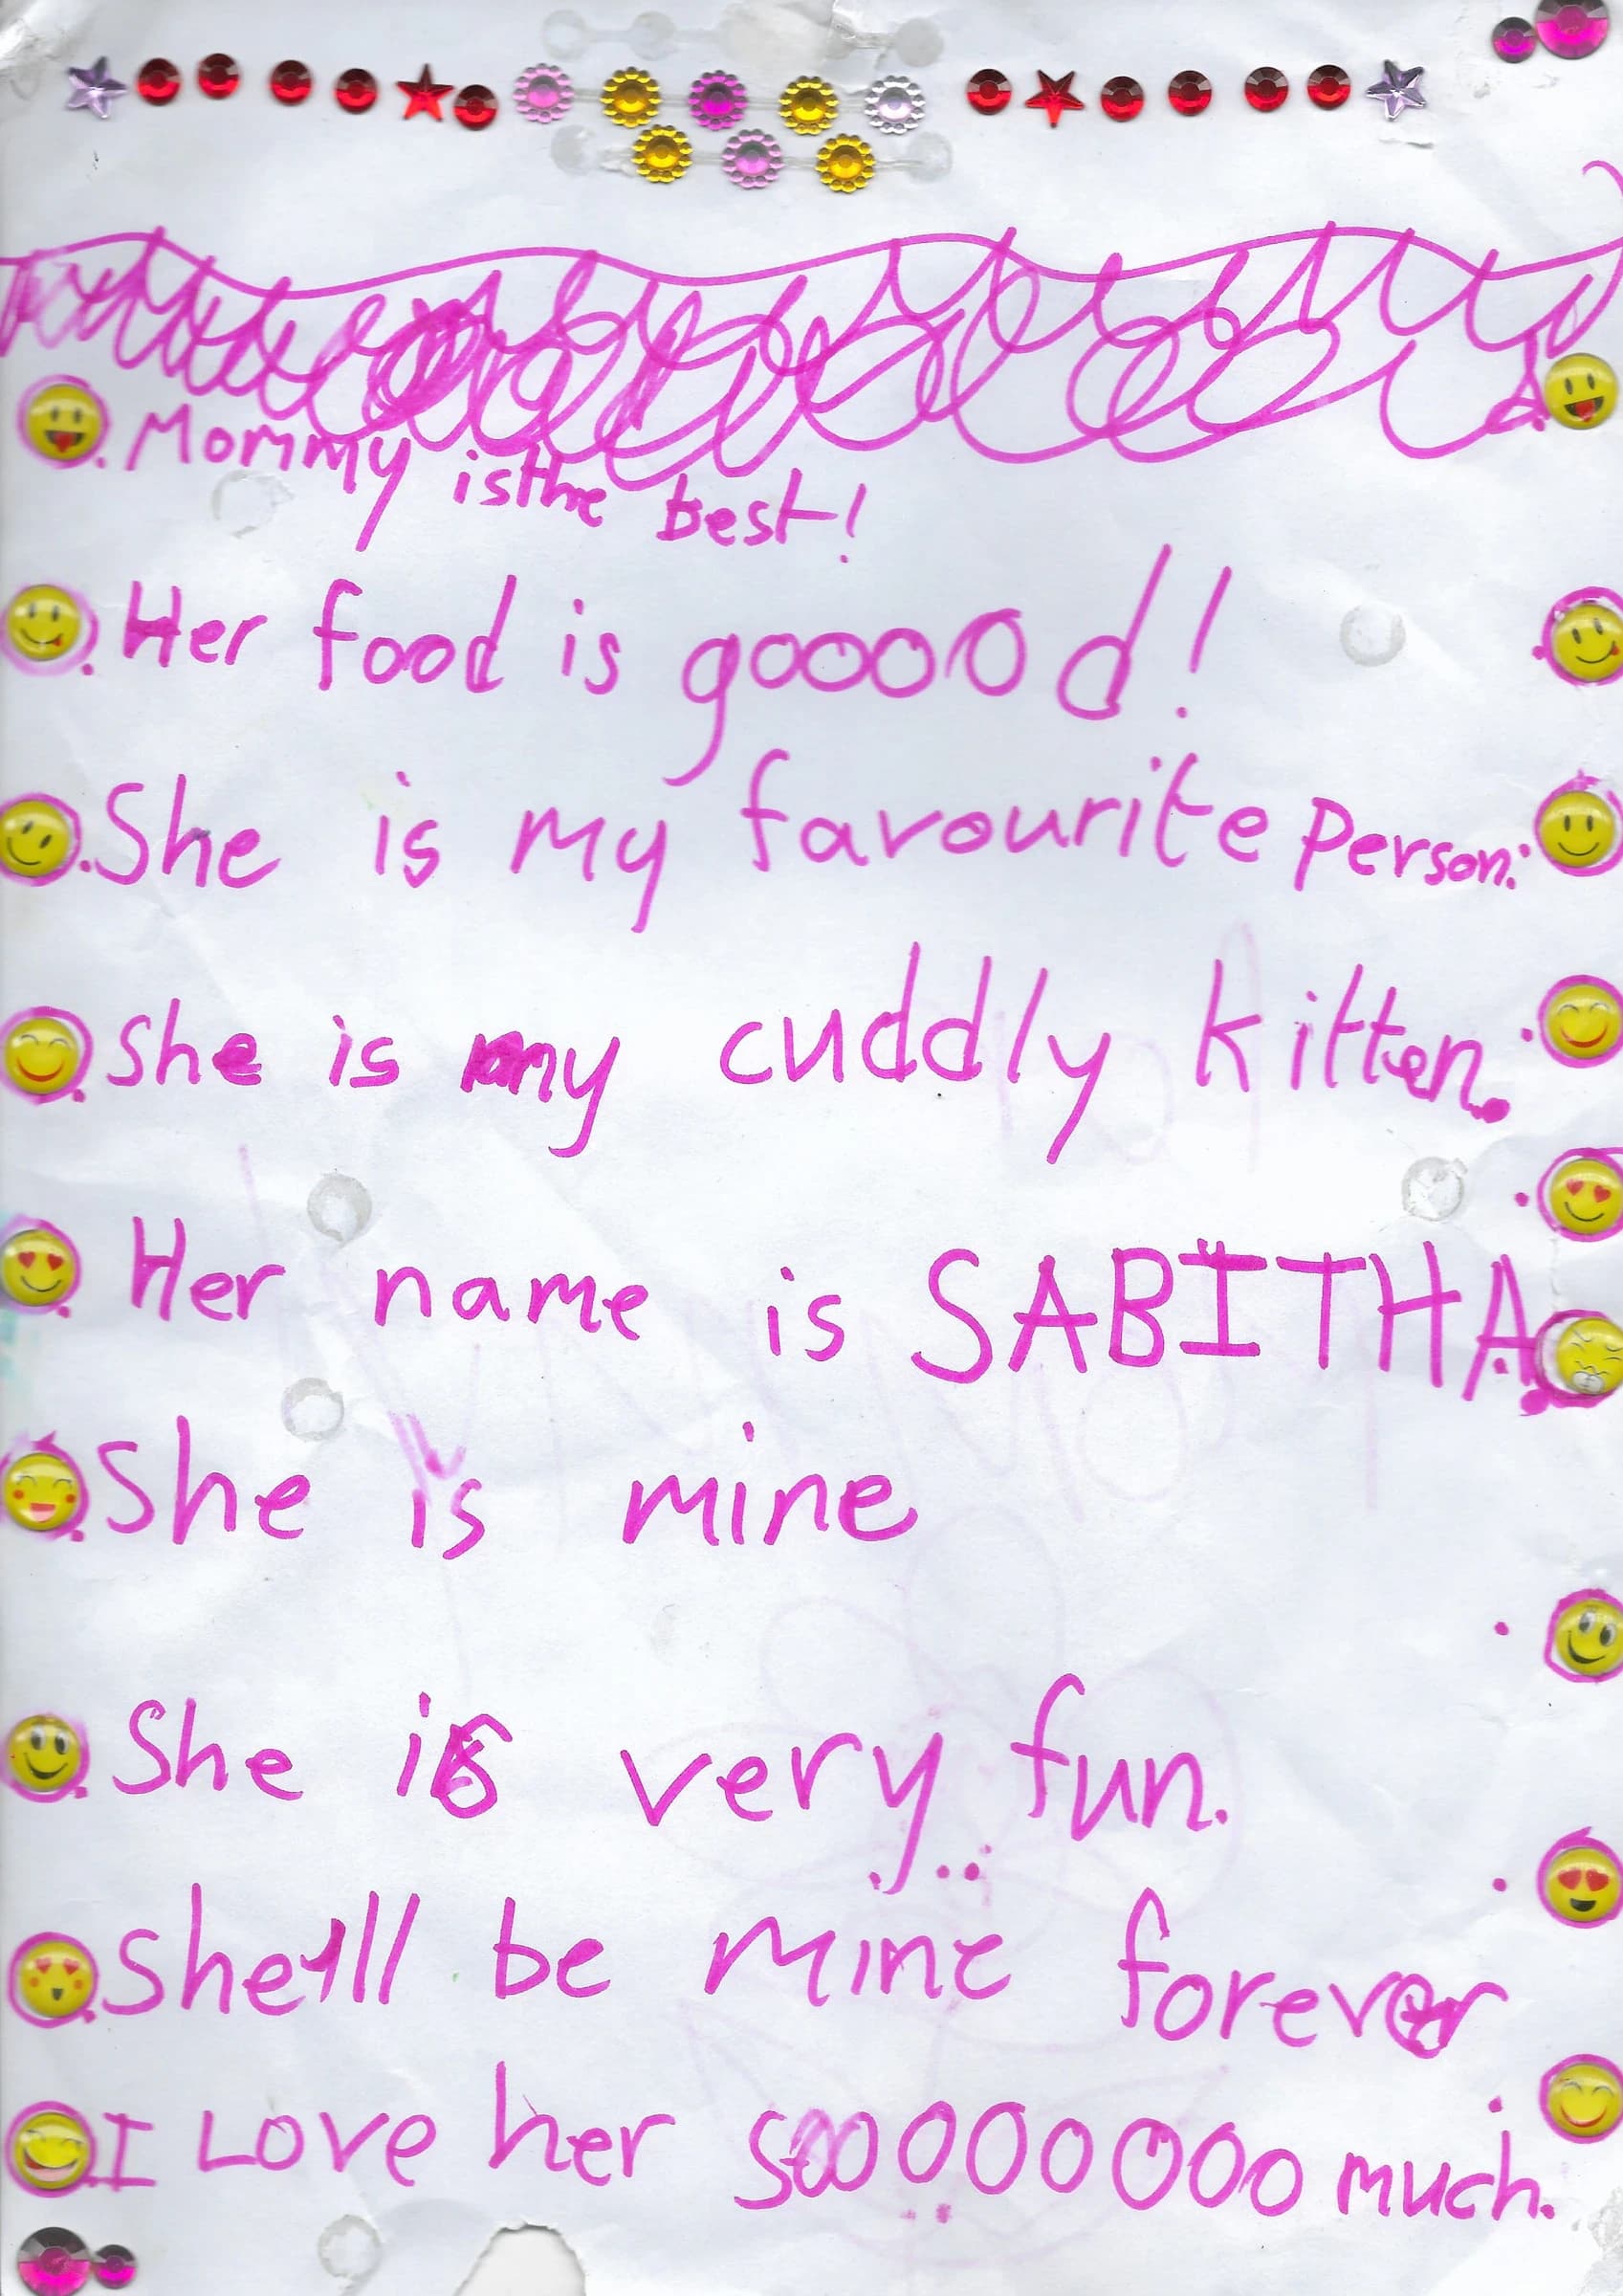 Mommy is the best!
Her food is gooood!
She is my favourite person.
She is my cuddly kitten.
Her name is SABITHA.
She is mine
She is very fun.
She'll be mine forever
I Love her sooooooooo much.